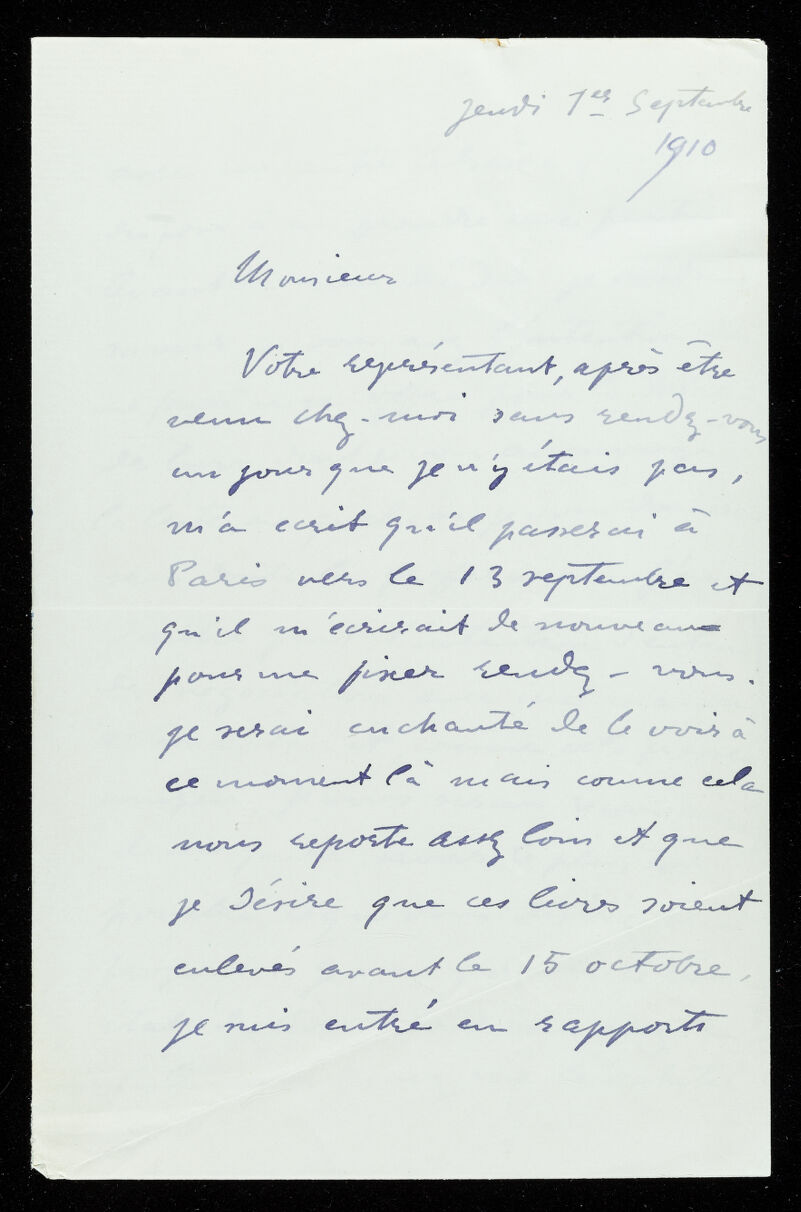 jeudi 1er Septembre
1910
Monsieur
Votre représentant, après être
venu chez-moi sans rendez-vous
un jour que je n'y étais pas,
m'a écrit qu'il passerai à
Paris vers le 13 septembre et
qu'il m'écrirait de nouveau
pour me fixer rendez-vous.
je serai enchanté de le voir à
ce moment là mais comme cela
nous reporte assez loin et que
je désire que ces livres soient
enlevés avant le 15 octobre,
je suis entré en rapports